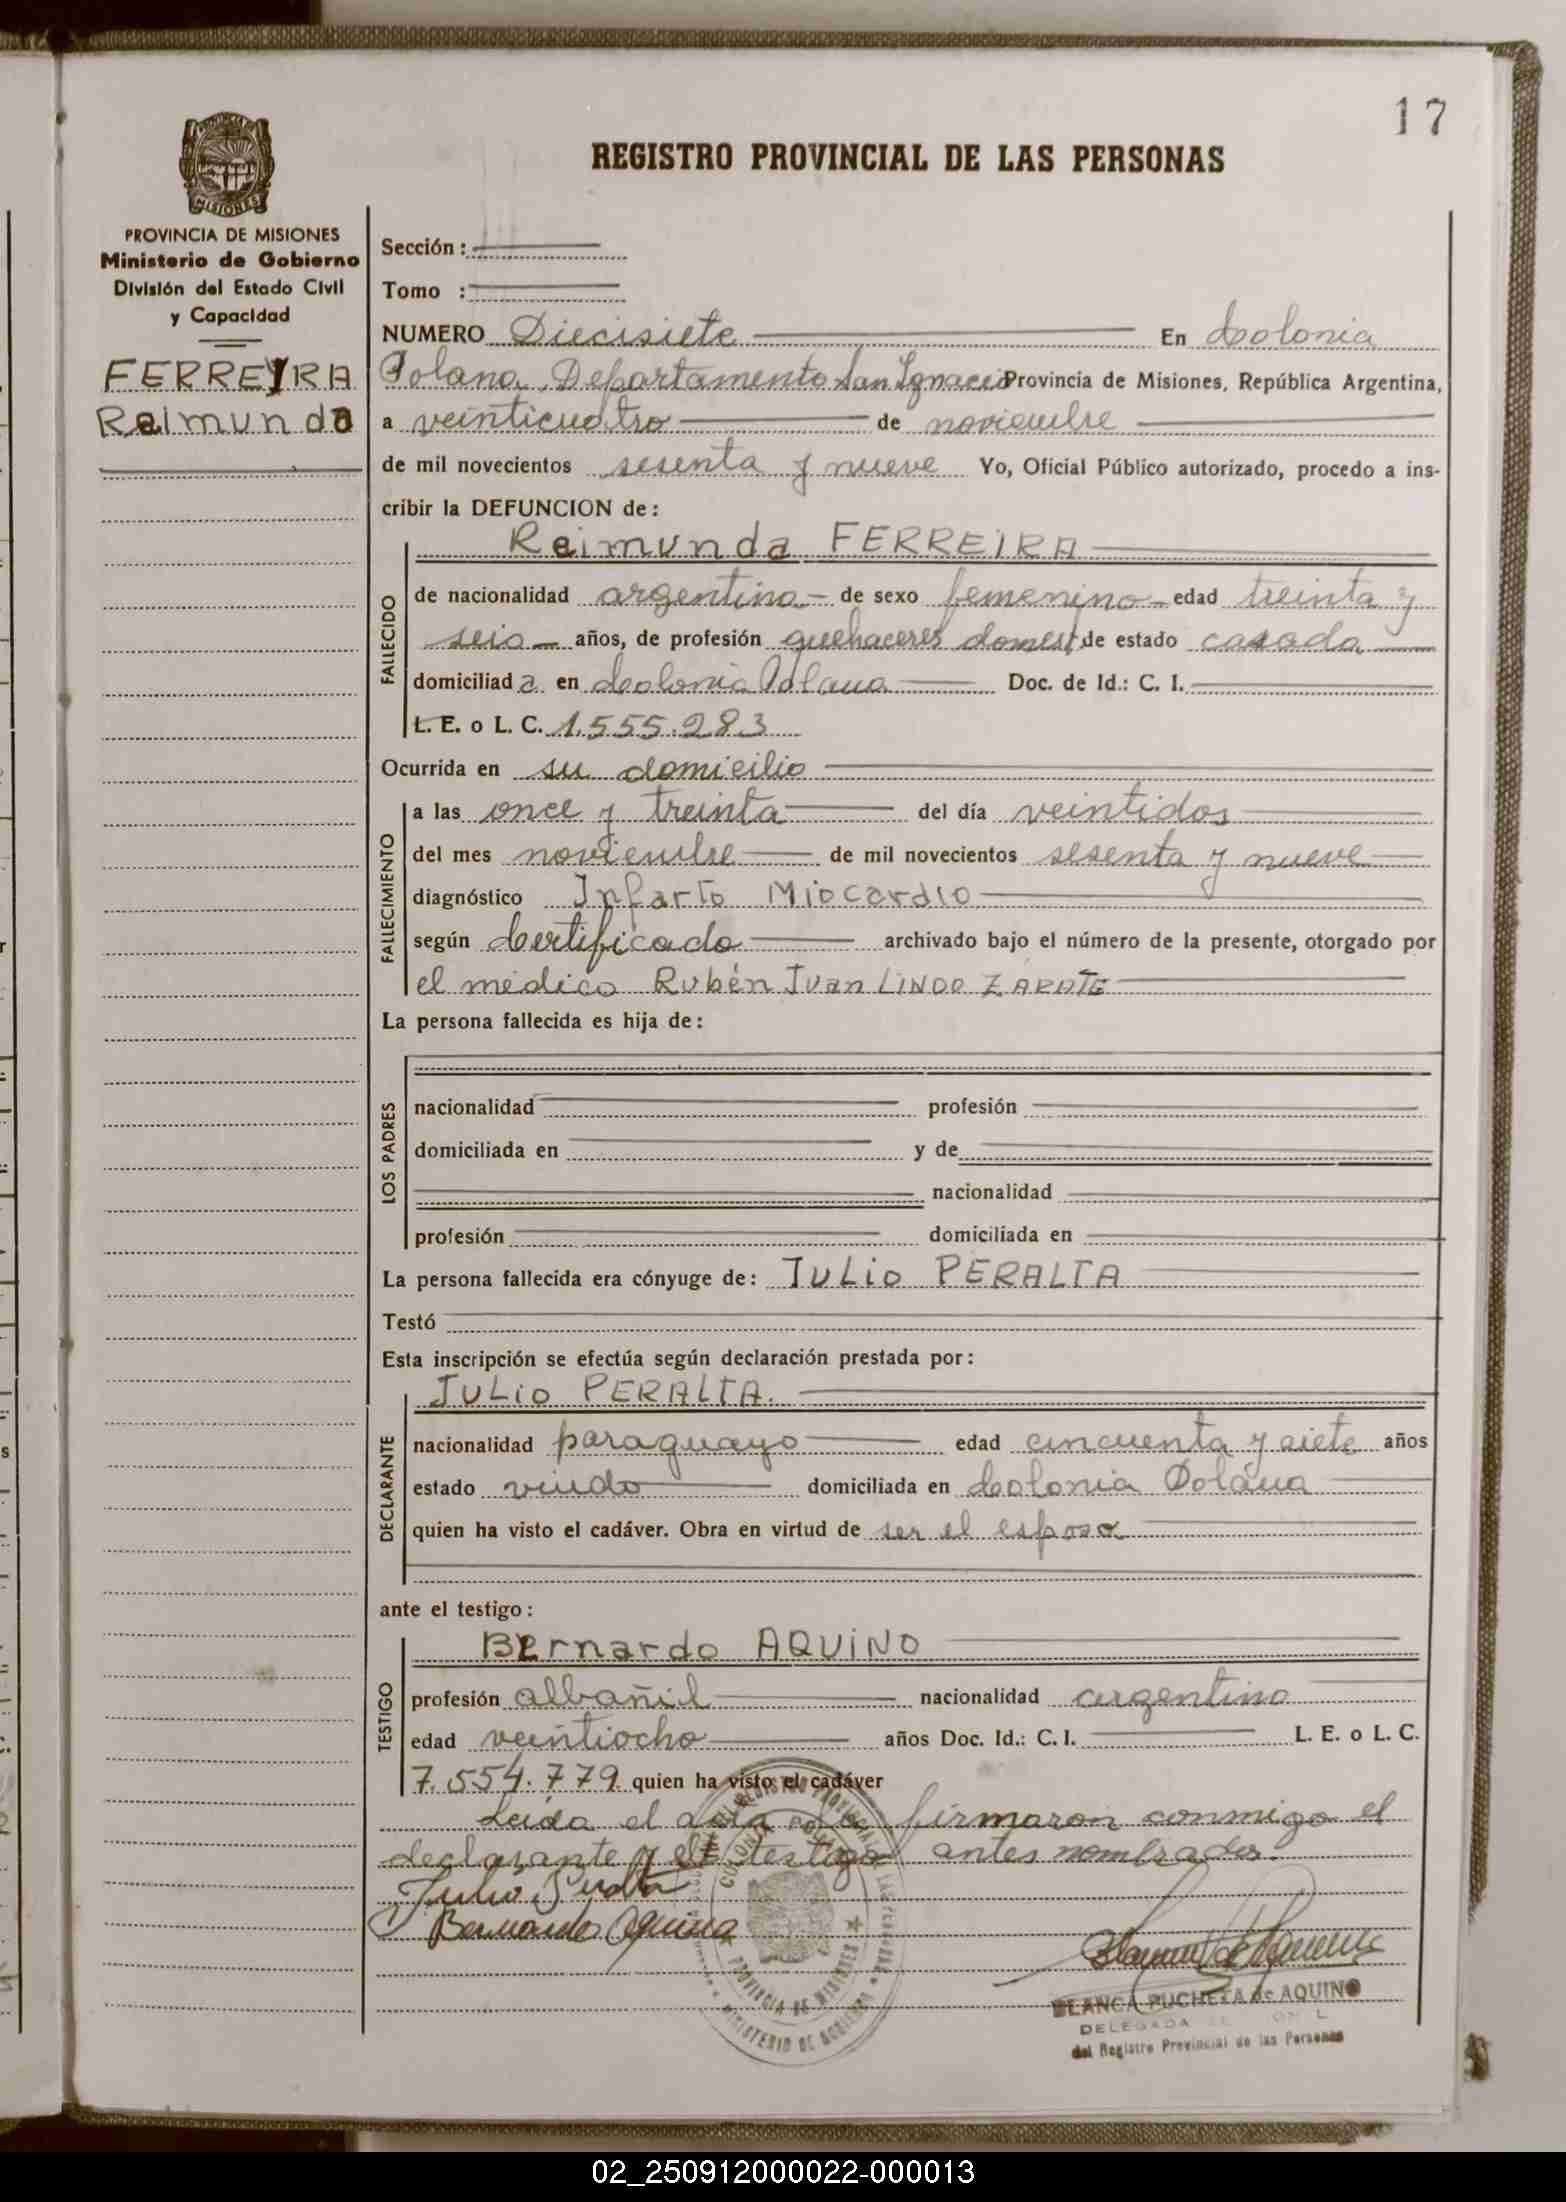 17
REGISTRO PROVINCIAL DE LAS PERSONAS
MISIONES
PROVINCIA DE MISIONES
Ministerio de Gobierno
División del Estado Civil
y Capacidad
FERREYRA
Raimunda
Sección :
Tomo :
NUMERO Diecisiete En Colonia
Polana, Departamento San Ignacio Provincia de Misiones, República Argentina,
a veinticuatro de noviembre
de mil novecientos sesenta y nueve Yo, Oficial Público autorizado, procedo a ins-
cribir la DEFUNCION de :
Raimunda FERREIRA
FALLECIDO
de nacionalidad argentina de sexo femenino edad treinta y
seis años, de profesión quehaceres domest de estado casada
domiciliad a en Colonia Polana Doc. de Id.: C. I.
L. E. o L. C. 1.555.283
Ocurrida en su domicilio
FALLECIMIENTO
a las once y treinta del día veintidos
del mes noviembre de mil novecientos sesenta y nueve
diagnóstico Infarto Miocardio
según Certificado archivado bajo el número de la presente, otorgado por
el médico Rubén Juan LINDO ZARATE
La persona fallecida es hija de :
LOS PADRES
nacionalidad profesión
domiciliada en y de
nacionalidad
profesión domiciliada en
La persona fallecida era cónyuge de : JULIO PERALTA
Testó
Esta inscripción se efectúa según declaración prestada por :
JULIO PERALTA.
DECLARANTE
nacionalidad paraguayo edad cincuenta y siete años
estado viudo domiciliada en Colonia Polana
quien ha visto el cadáver. Obra en virtud de ser el esposo
ante el testigo :
Bernardo AQUINO
TESTIGO
profesión albañil nacionalidad argentino
edad veintiocho años Doc. Id.: C. I. L. E. o L. C.
7.554.779 quien ha visto el cadáver
Leída el acta la firmaron conmigo el
declarante y el testigo antes nombrados.
Julio Peralta
Bernardo Aquino
PROVINCIA DE MISIONES
MINISTERIO DE GOBIERNO
BLANCA PUCHETA de AQUINO
DELEGADA
del Registro Provincial de las Personas
02_250912000022-000013